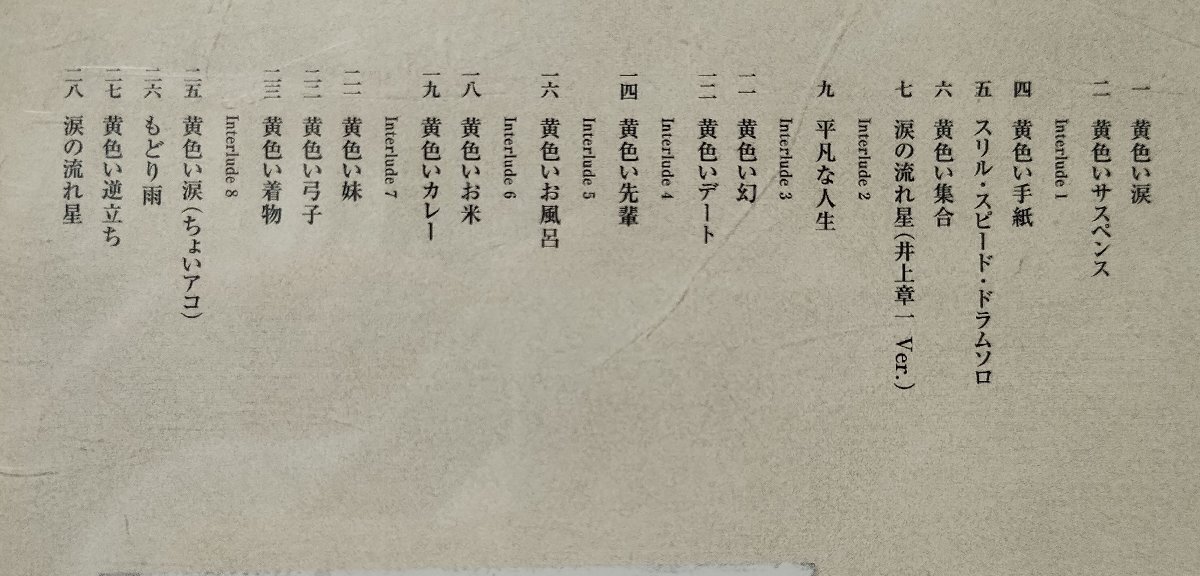 一 黄色い涙
二 黄色いサスペンス
Interlude 1
四 黄色い手紙
五 スリル・スピード・ドラムソロ
六 黄色い集合
七 涙の流れ星(井上章一 Ver.)
Interlude 2
九 平凡な人生
Interlude 3
一一 黄色い幻
一二 黄色いデート
Interlude 4
一四 黄色い先輩
Interlude 5
一六 黄色いお風呂
Interlude 6
一八 黄色いお米
一九 黄色いカレー
Interlude 7
二一 黄色い妹
二二 黄色い弓子
二三 黄色い着物
Interlude 8
二五 黄色い涙(ちょいアコ)
二六 もどり雨
二七 黄色い逆立ち
二八 涙の流れ星